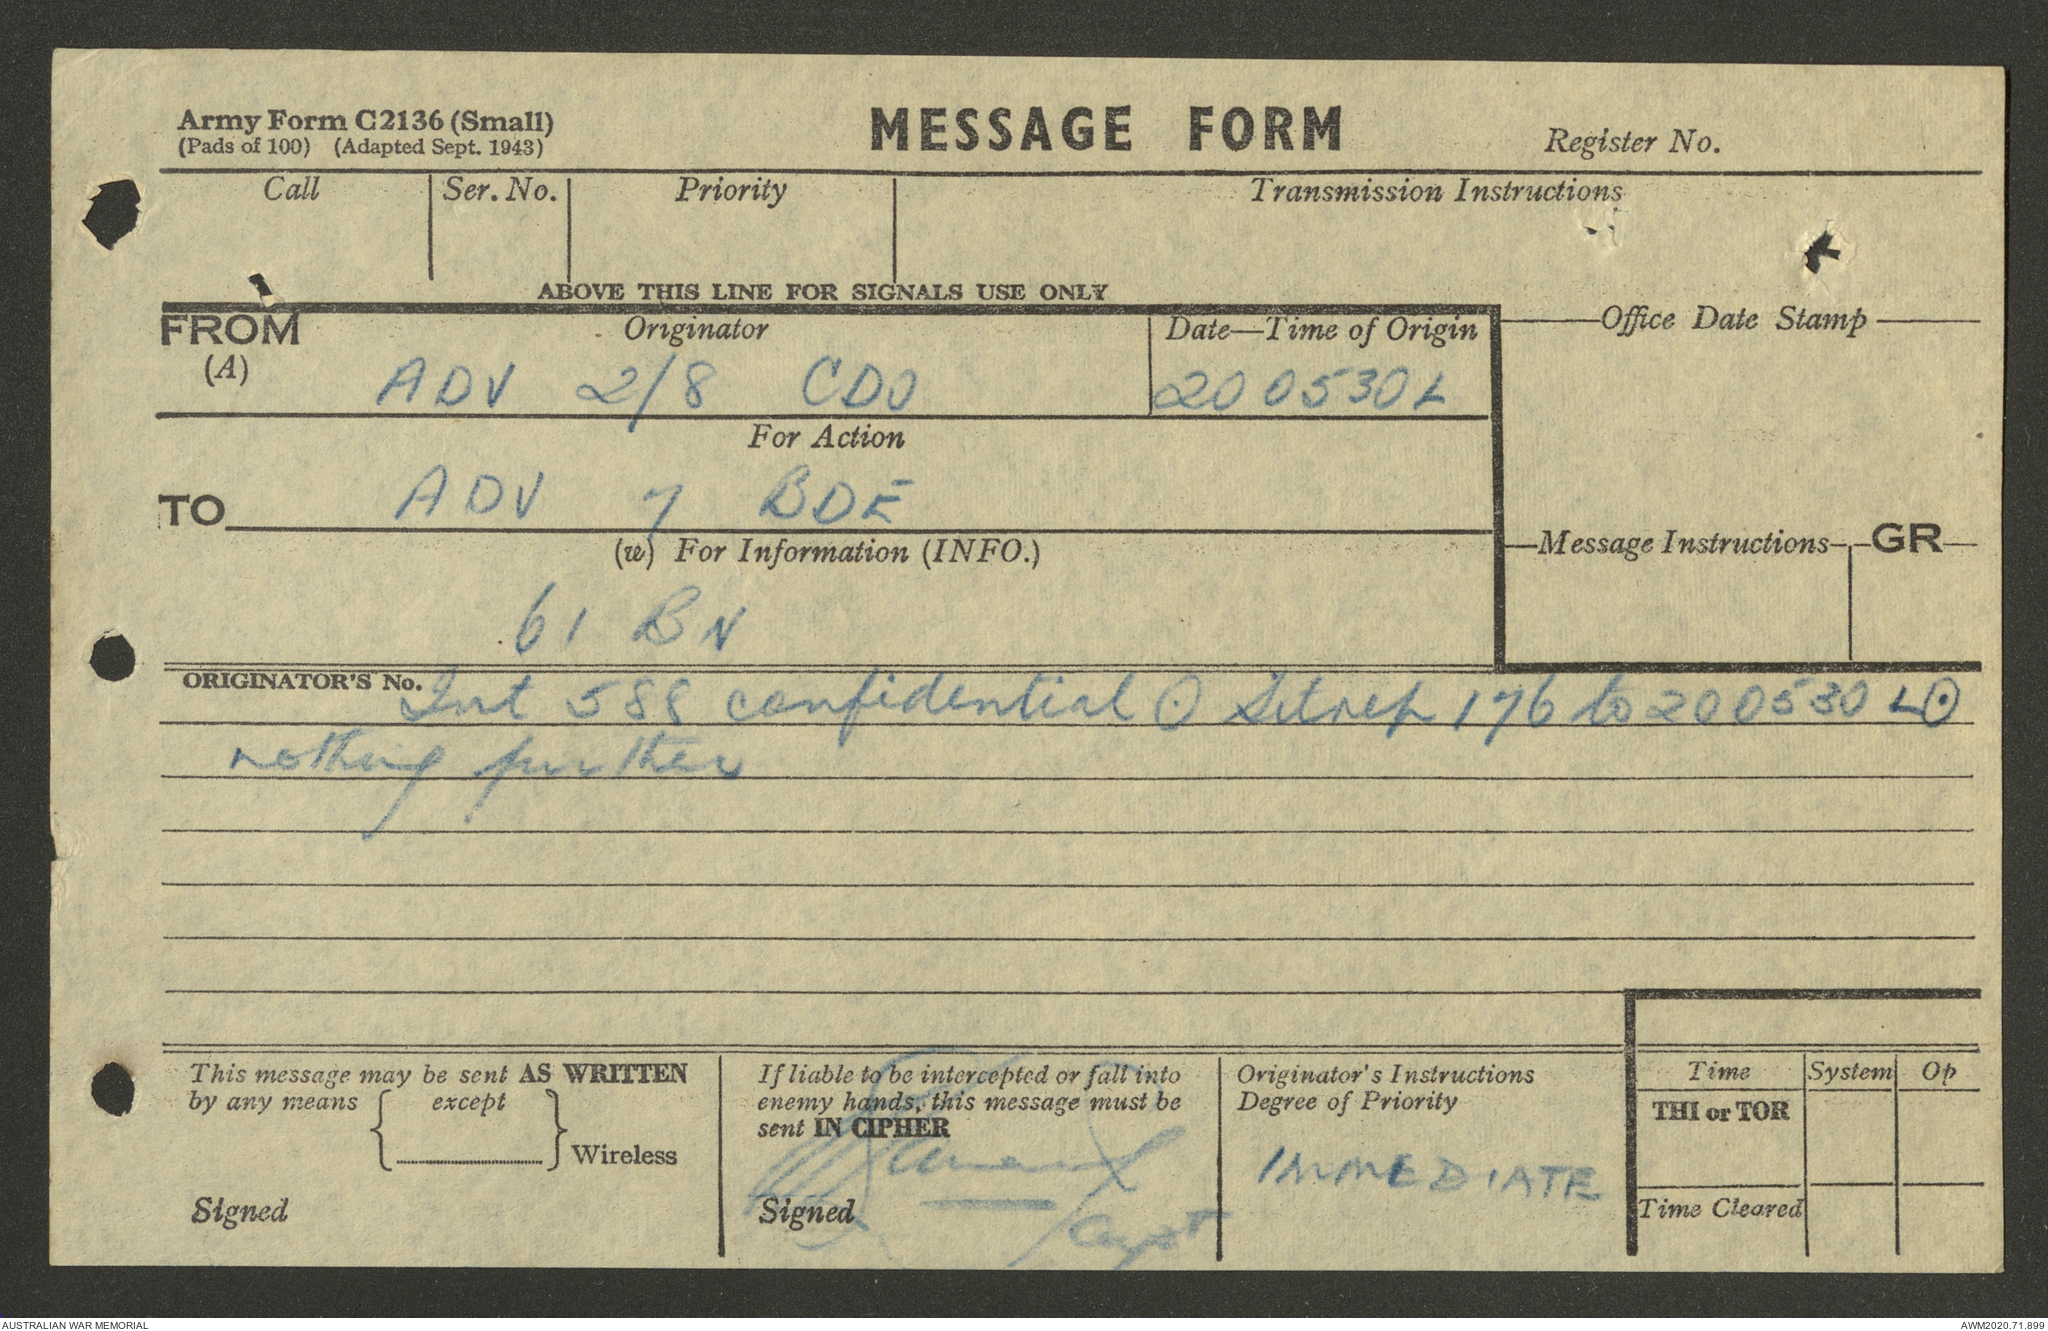 Army Form C2136 (Small)
(Pads of 100) (Adapted Sept. 1943)
MESSAGE FORM
Register No.
Call Ser. No. Priority Transmission Instructions
ABOVE THIS LINE FOR SIGNALS USE ONLY
FROM Originator Date—Time of Origin Office Date Stamp
(A)
ADV 2/8 CDO 200530L
For Action
TO ADV 7 BDE
(w) For Information (INFO.) Message Instructions GR
61 BN
ORIGINATOR'S No. Int 588 confidential ⊙ Sitrep 176 to 200530L ⊙
nothing further
This message may be sent AS WRITTEN
by any means except
Wireless
Signed
If liable to be intercepted or fall into
enemy hands, this message must be
sent IN CIPHER
Signed
Capt
Originator's Instructions
Degree of Priority
IMMEDIATE
Time System Op
THI or TOR
Time Cleared
AUSTRALIAN WAR MEMORIAL AWM2020.71.899